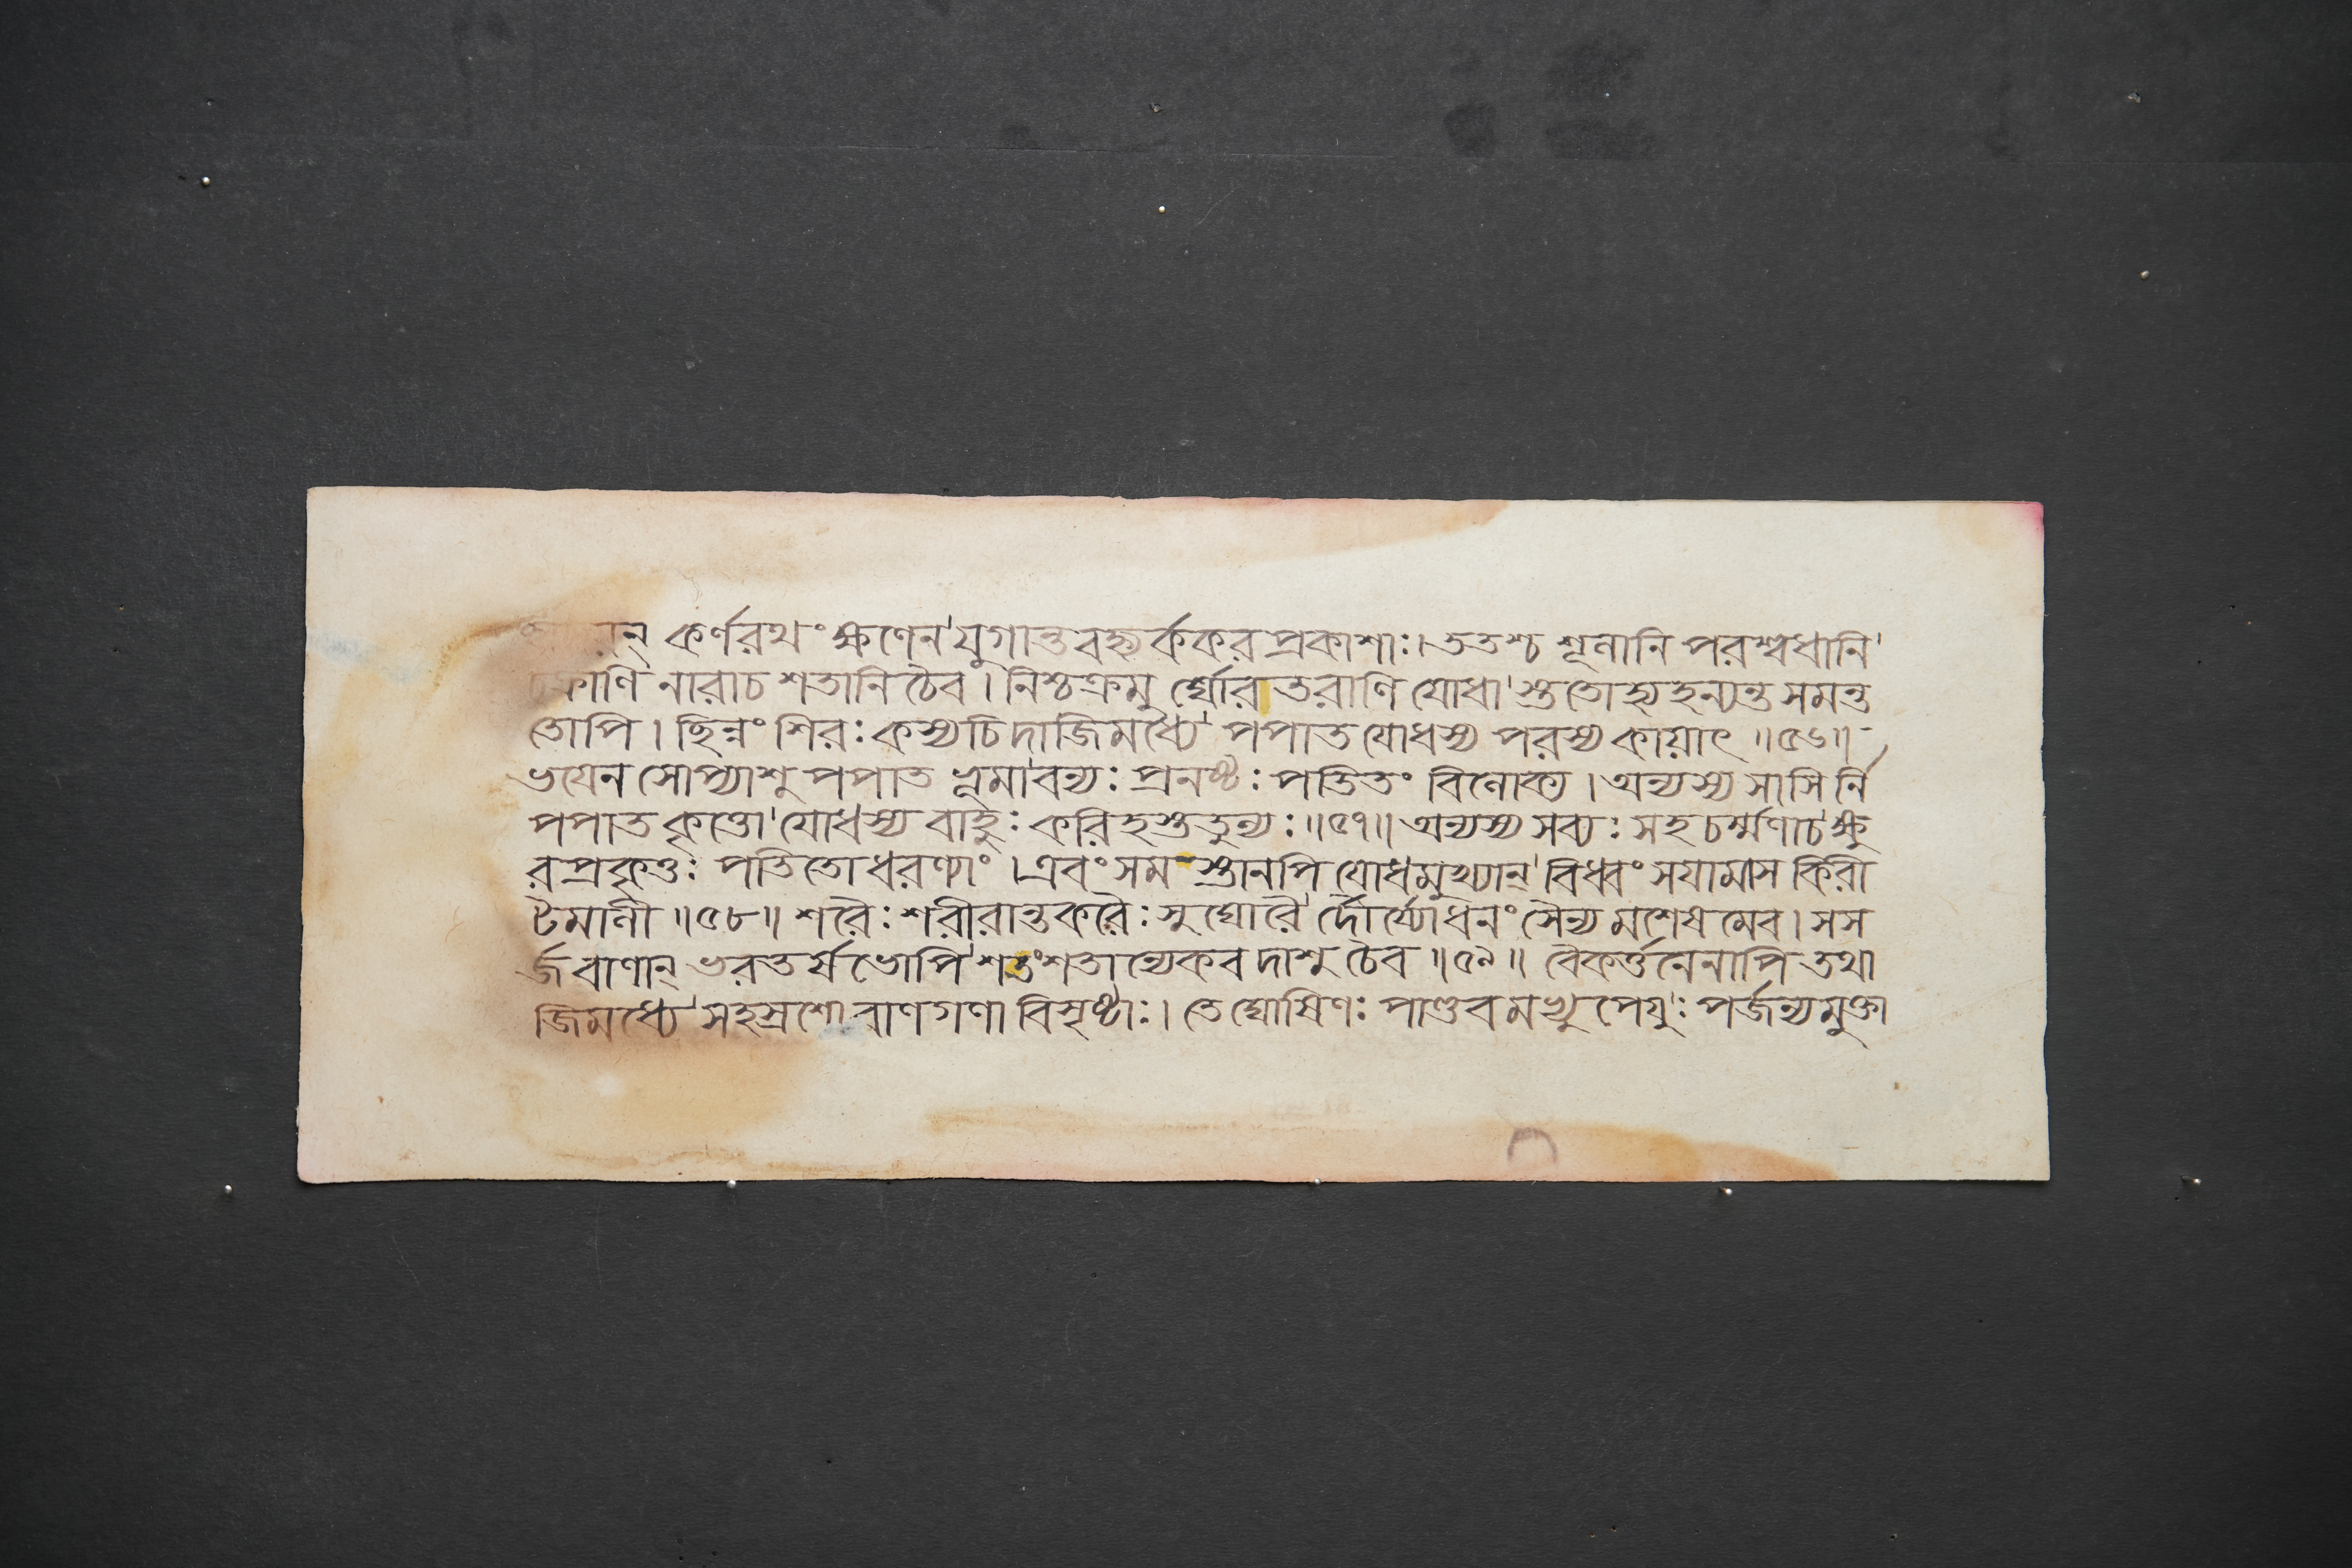 কর্ণরথং ক্ষণেন যুগান্তবহ্ন্যর্ককরপ্রকাশাঃ। ততশ্চ শূলানি পরশ্বধানি
চক্রাণি নারাচ শতানি চৈব। নিশ্চক্রমু র্ঘোরতরাণি যোধা স্ততোহ্যহন্যন্ত সমন্ত
তোপি। ছিন্নং শিরঃ কস্যচিদাজিমধ্যে পপাত যোধস্য পরস্য কায়াৎ ॥৫৬॥
ভয়েন সোপ্যাশু পপাত ভূমাবন্যঃ প্রনষ্টঃ পতিতং বিলোক্য। অন্যস্য সাসি র্নি
পপাত কৃত্তো যোধস্য বাহুঃ করিহস্ততুল্যঃ ॥৫৭॥ অন্যস্য সব্যঃ সহ চর্ম্মণাচ ক্ষু
রপ্রকৃত্তঃ পতিতো ধরণ্যাং। এবং সমস্তানপি যোধমুখ্যান্ বিধ্বংসয়ামাস কিরী
টমালী ॥৫৮॥ শরৈঃ শরীরান্তকরৈঃ সুঘোরৈ র্দৌর্য্যোধনং সৈন্য মশেষমেব। সস
র্জ বাণান্ ভরতর্ষভোপি শতংশতান্যেকবদাশু চৈব ॥৫৯॥ বৈকর্ত্তনেনাপি তথা
জিমধ্যে সহস্রশো বাণগণা বিসৃষ্টাঃ। তে ঘোষিণঃ পাণ্ডবমভ্যুপেয়ুঃ পর্জন্যমুক্তা